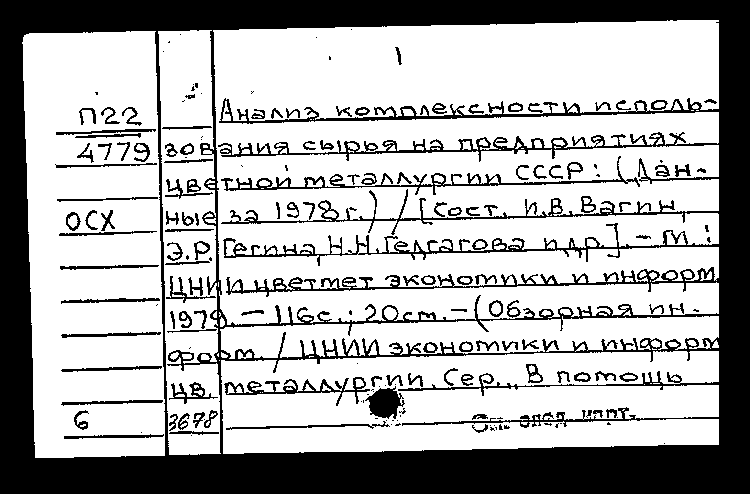 1
П22 Анализ комплексности исполь-
4779 зования сырья на предприятиях
цветной металлургии СССР: (Дан-
ОСХ ные за 1978г.) / [Сост. И.В. Вагин,
Э.Р. Гегина, Н.Н. Гедгагова и др.]. - М.:
ЦНИИ цветмет экономики и информ.
1979. - 116с.; 20см. - (Обзорная ин-
форм. / ЦНИИ экономики и информ
цв. металлургии. Сер., В помощь
6 3678 См. след. карт.